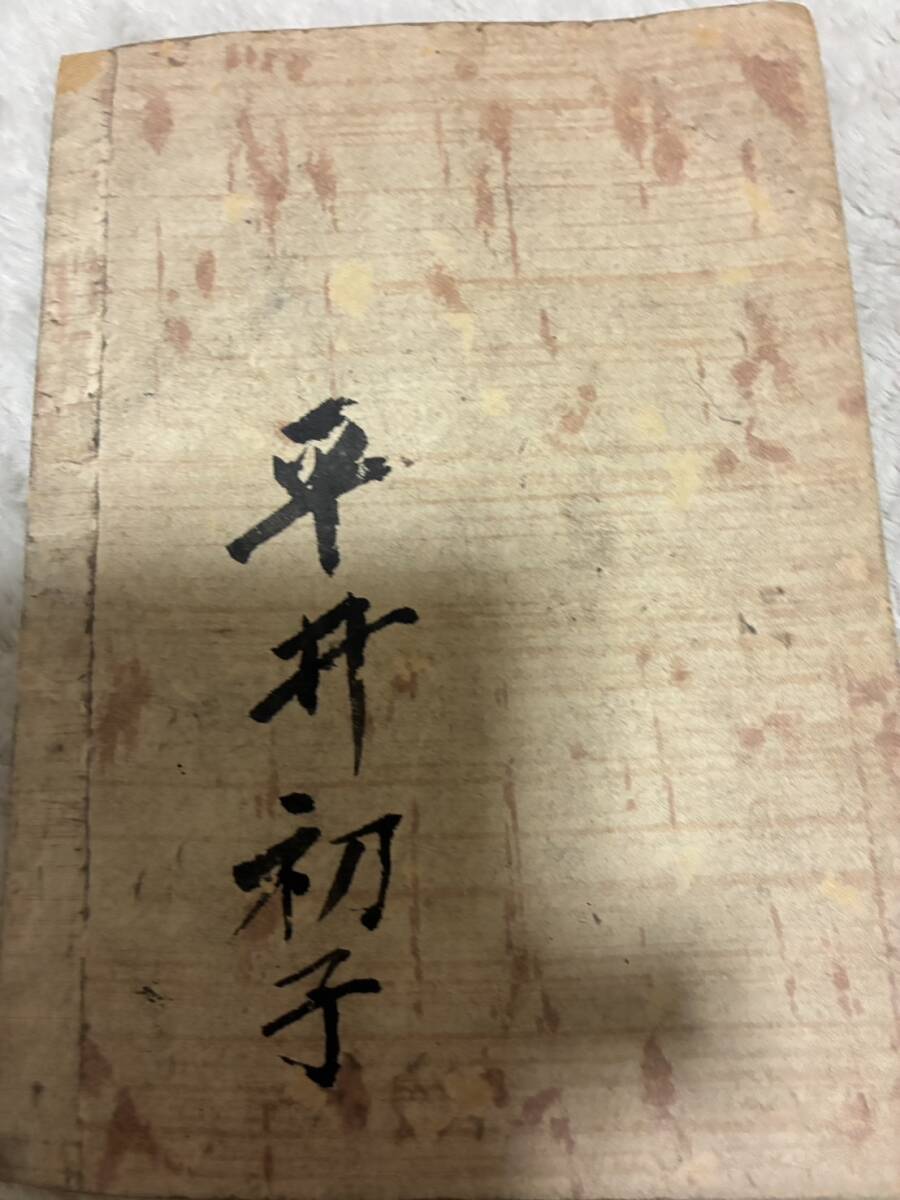 平井初子